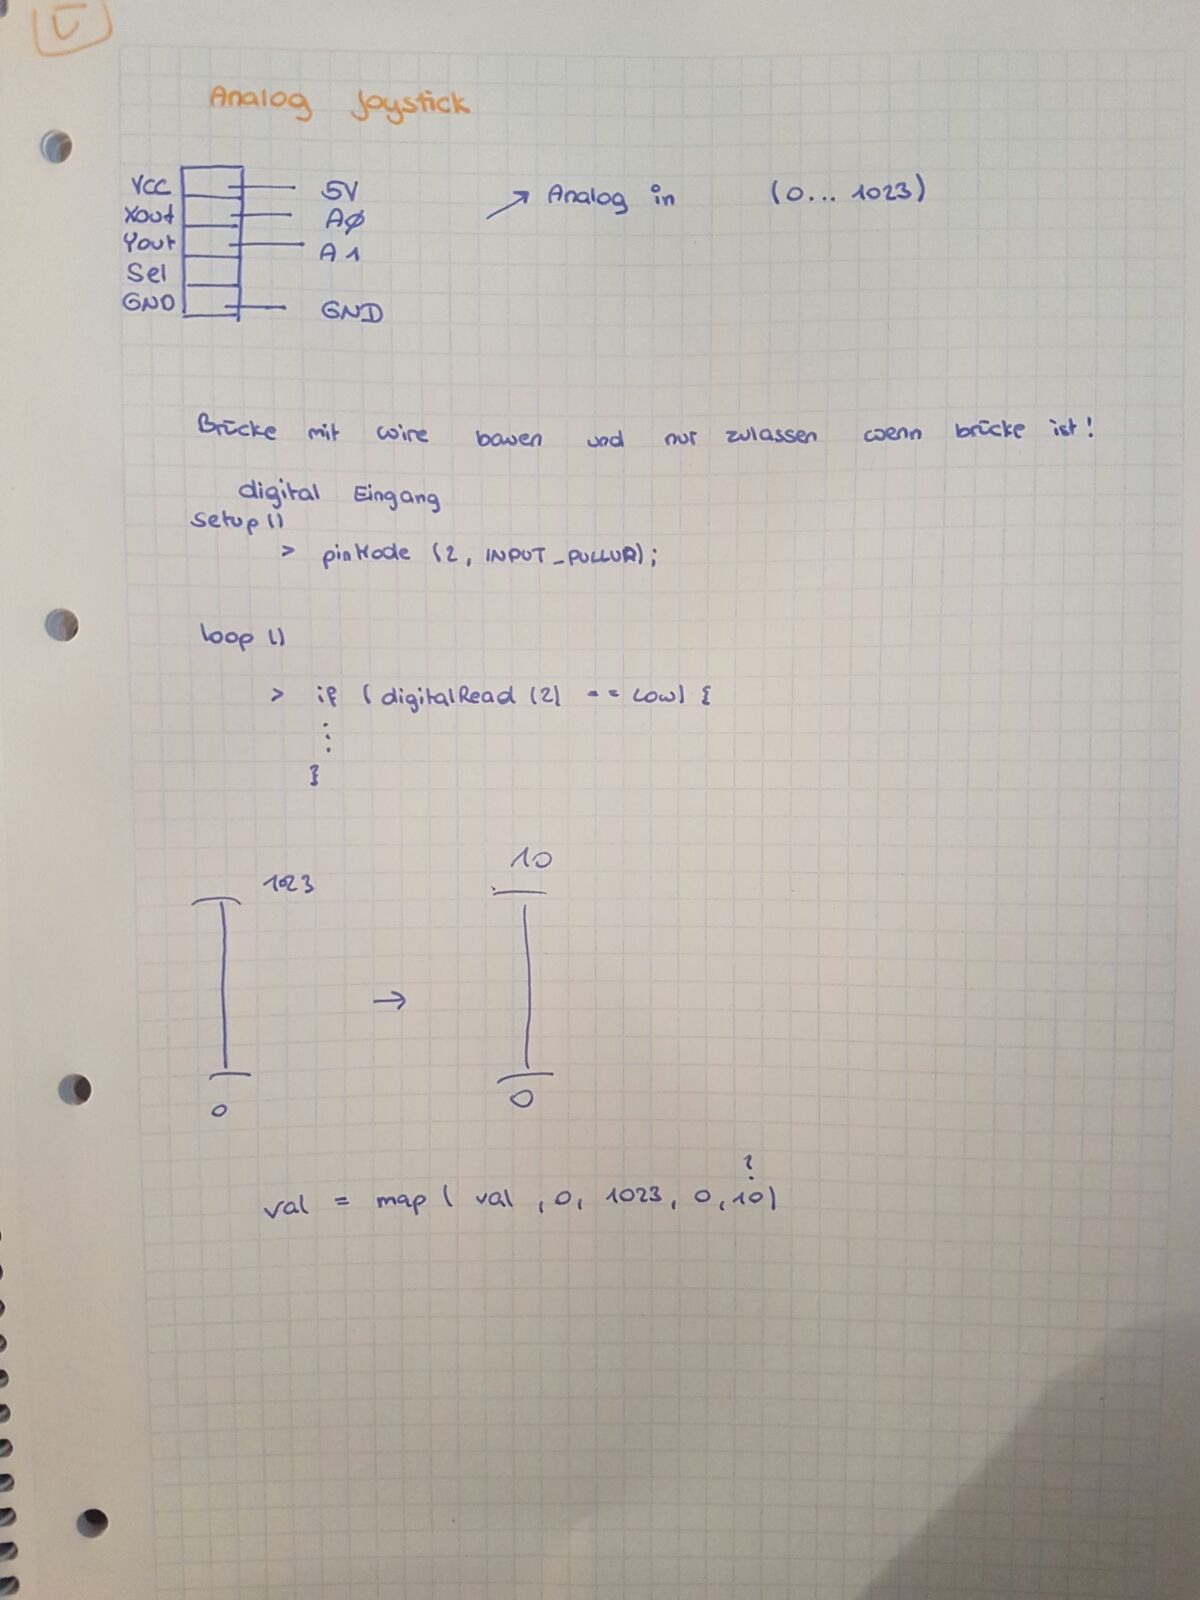 Analog Joystick
VCC 5V
Xout AØ
Yout A1
Sel
GND GND
→ Analog in (0... 1023)
Brücke mit wire bauen und nur zulassen wenn brücke ist!
digital Eingang
setup ()
> pinMode (2, INPUT_PULLUP);
loop ()
> if (digitalRead (2) == LOW) {
⋮
}
1023 10
→
0 0
?
val = map ( val , 0, 1023, 0, 10)